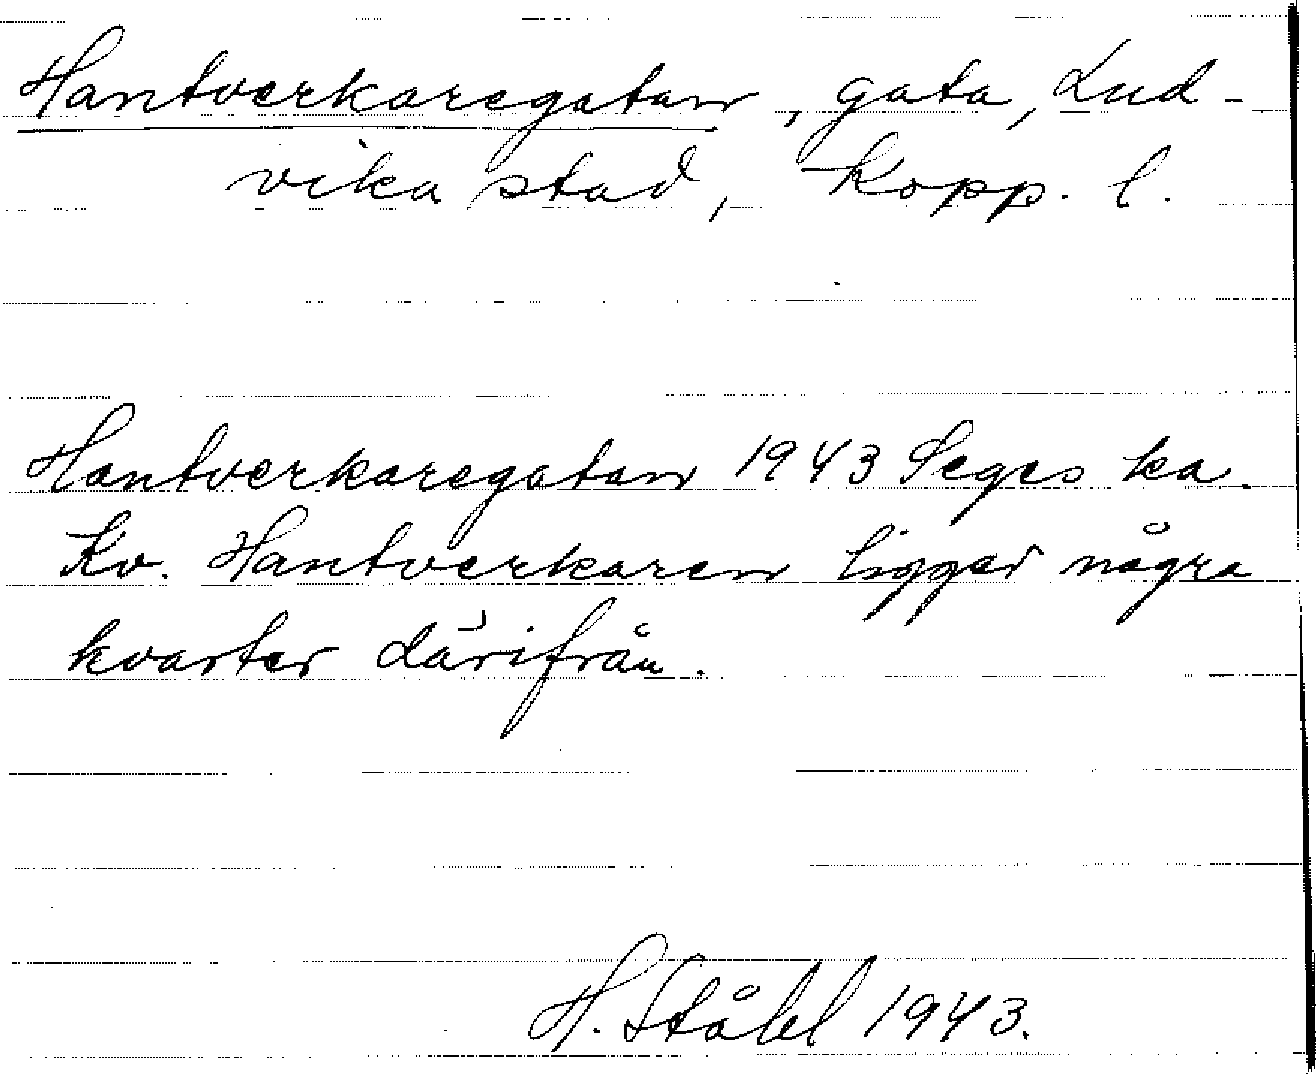 Hantverkaregatan, gata, Lud-
vika stad, Kopp. l.
Hantverkaregatan 1943 Seges ka.
Kv. Hantverkaren ligger några
kvarter därifrån.
H. Ståhl 1943.